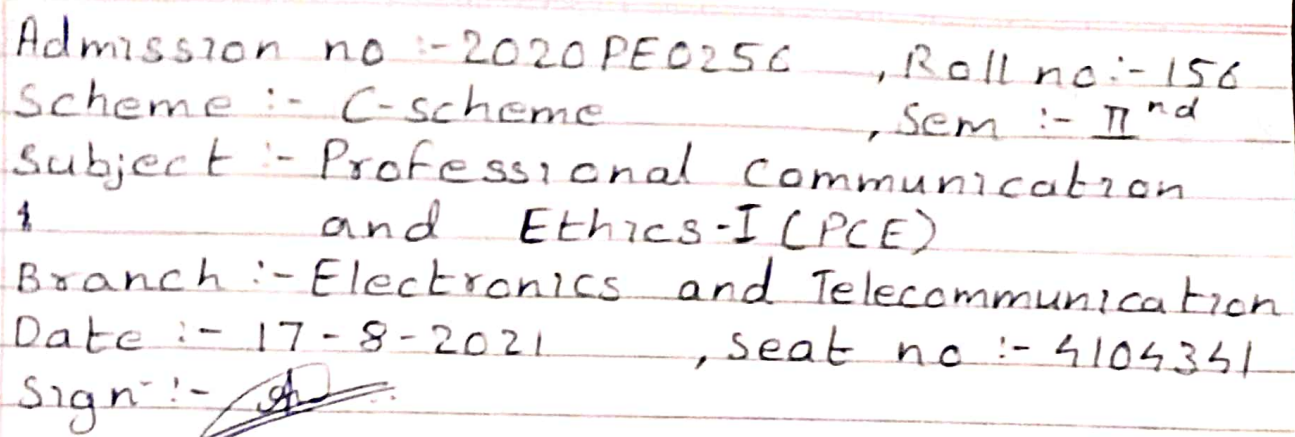 Admission no :- 2020PE0256 , Roll no :- 156
Scheme :- C-scheme , Sem :- IInd
Subject :- Professional Communication
and Ethics-I (PCE)
Branch :- Electronics and Telecommunication
Date :- 17-8-2021 , Seat no :- 4104341
Sign :-